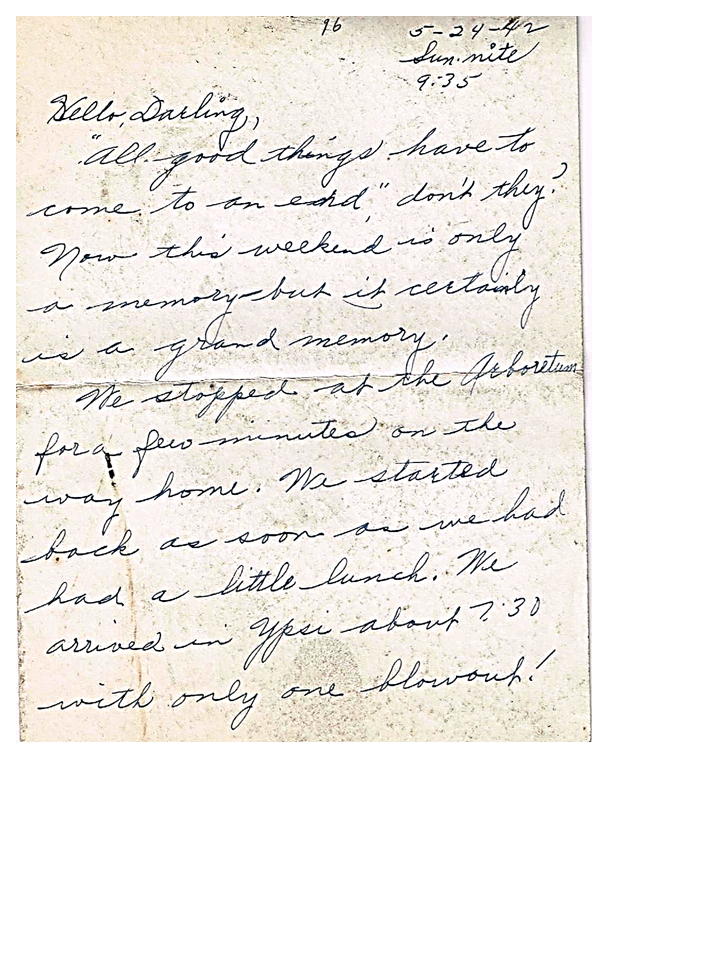 96
5-24-42
Sun. nite
9:35
Hello, Darling,
"All good things have to
come to an end," don't they?
Now this weekend is only
a memory - but it certainly
is a grand memory.
We stopped at the Arboretum
for a few minutes on the
way home. We started
back as soon as we had
had a little lunch. We
arrived in Ypsi about 7:30
with only one blowout!